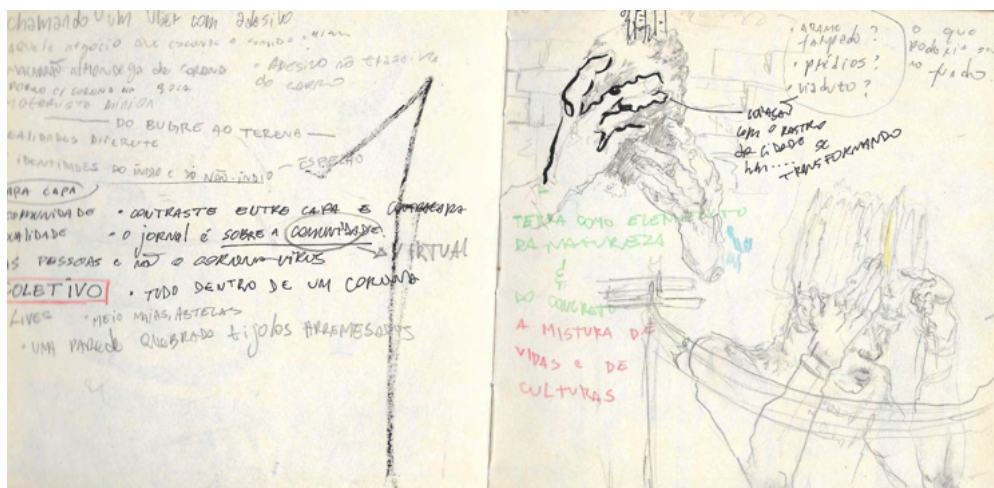 chamando um Uber com adesivo
aquele negócio que
do corona
• Adesivo na traseira
do carro
corona na
motorista
— DO BUGRE AO TERENA —
REALIDADES DIFERENTE
IDENTIDADES DO ÍNDIO E DO NÃO-ÍNDIO — ESPERÃO
CAPA
COMUNIDADE • CONTRASTE ENTRE CAPA E CONTRACAPA
• O jornal é SOBRE A COMUNIDADE
VIRTUAL
AS PESSOAS E NÃO O CORONA-VÍRUS
COLETIVO • TUDO DENTRO DE UM CORONA
LIVES • MEIO MAIAS, ASTECAS
• UMA PAREDE QUEBRADO tijolos ARREMESADOS
• ARAME
farpado?
• prédios?
• viaduto?
o que
poderia
no fundo
COM O RASTRO
DA CIDADE SE
TRANSFORMANDO
TERRA COMO ELEMENTO
DA NATUREZA
&
DO CONCRETO
A MISTURA DE
VIDAS e DE
CULTURAS